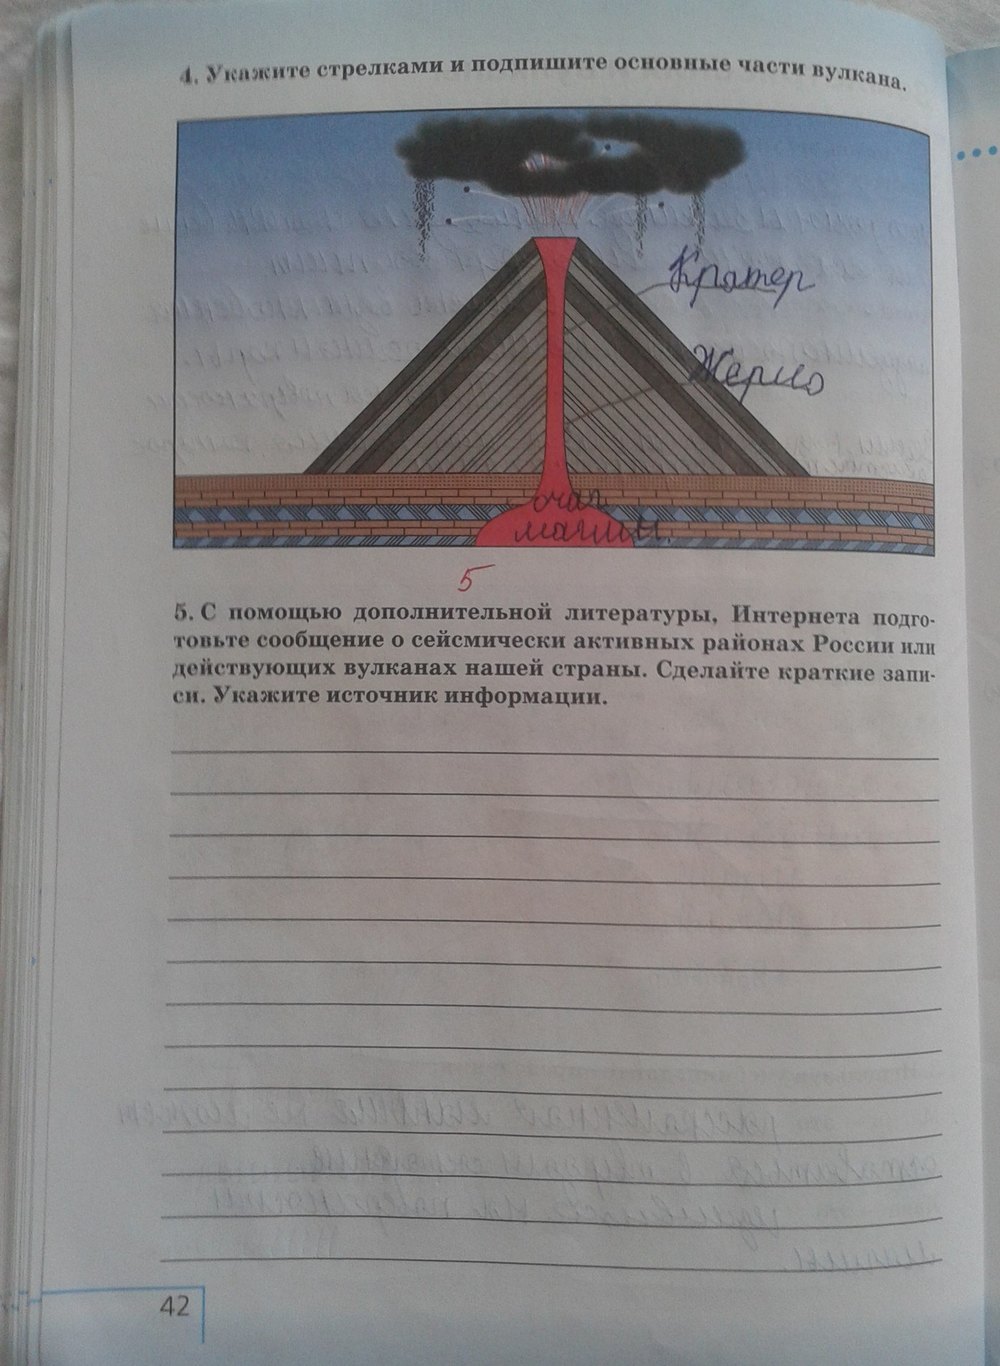 4. Укажите стрелками и подпишите основные части вулкана.
Кратер
Жерло
очаг
магмы.
5
5. С помощью дополнительной литературы, Интернета подго-
товьте сообщение о сейсмически активных районах России или
действующих вулканах нашей страны. Сделайте краткие запи-
си. Укажите источник информации.
42